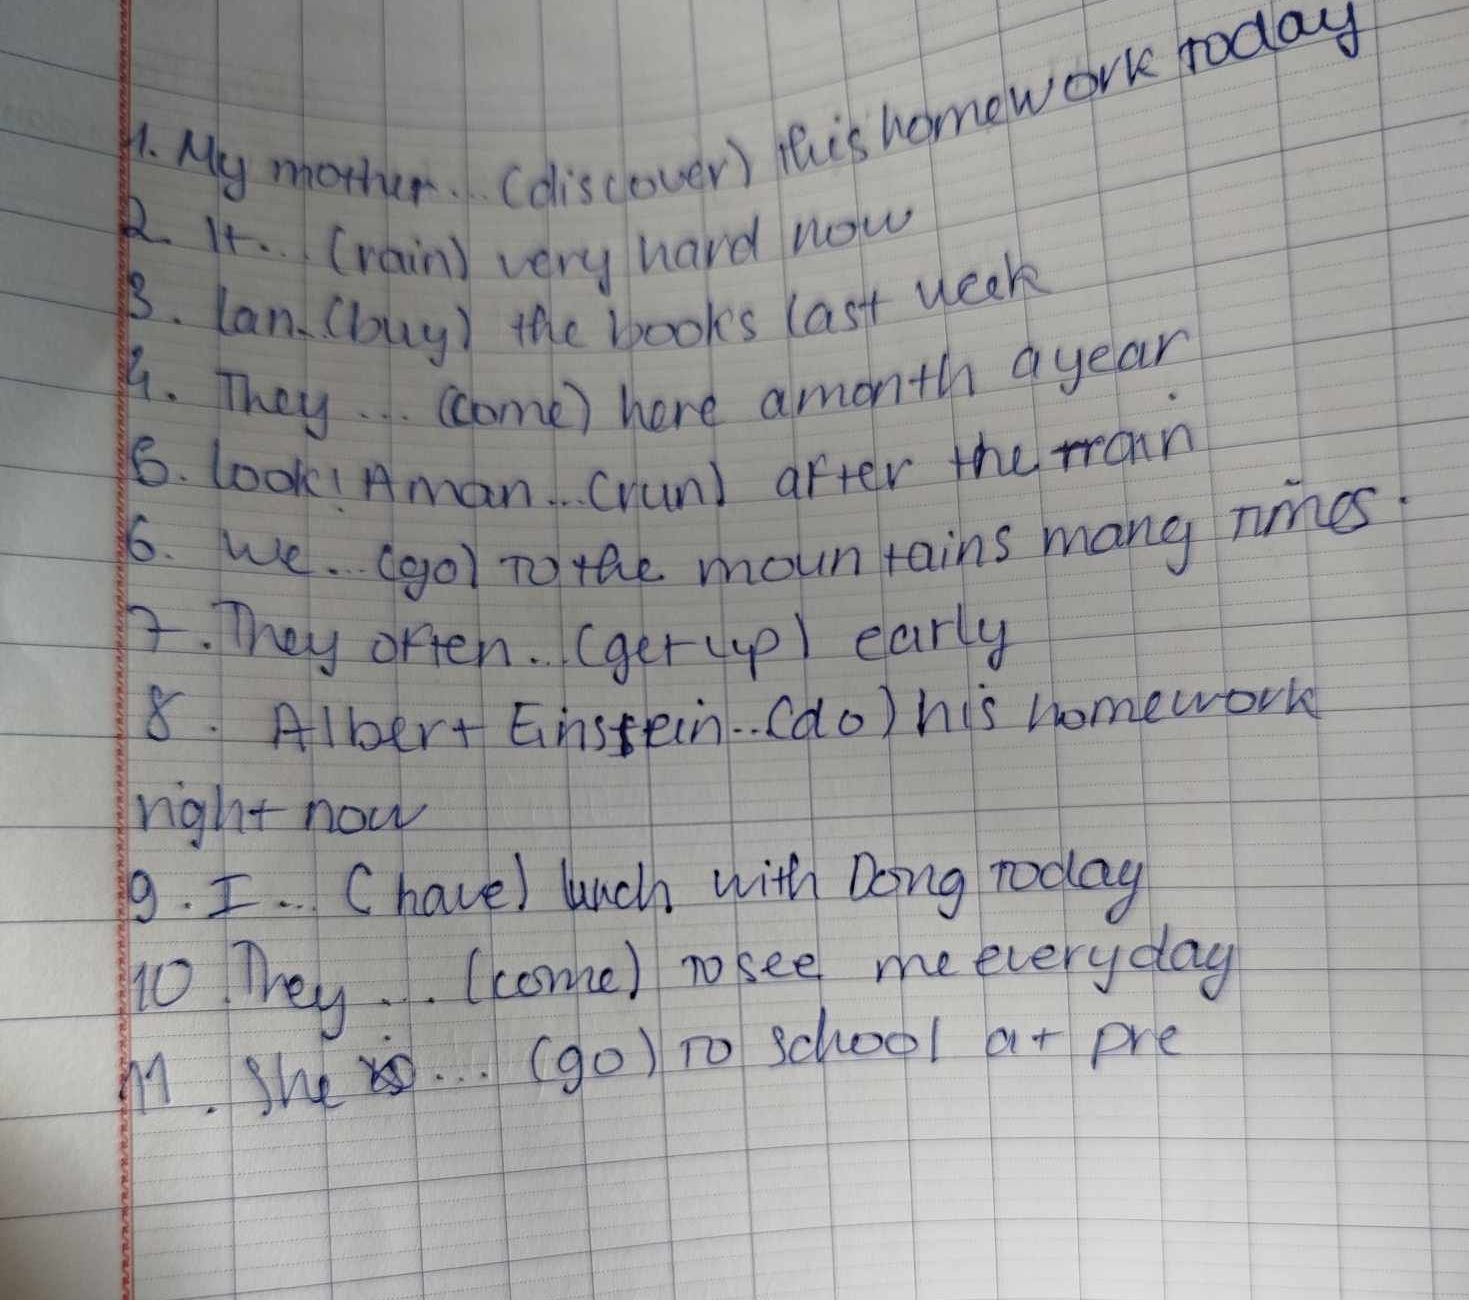 1. My mother... (discover) this homework today
2. It... (rain) very hard now
3. Lan..(buy) the books last week
4. They ... (come) here amonth ayear
5. look! A man... (run) after the train
6. We... (go) to the mountains many times.
7. They often... (get up) early
8. Albert Einstein...(do) his homework
right now
9. I ... (have) lunch with Dong today
10 They ... (come) to see me everyday
11. She ... (go) to school at pre